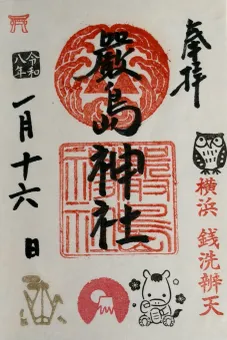 奉拝
横浜 銭洗辨天
嚴島神社
令和八年
一月十六日